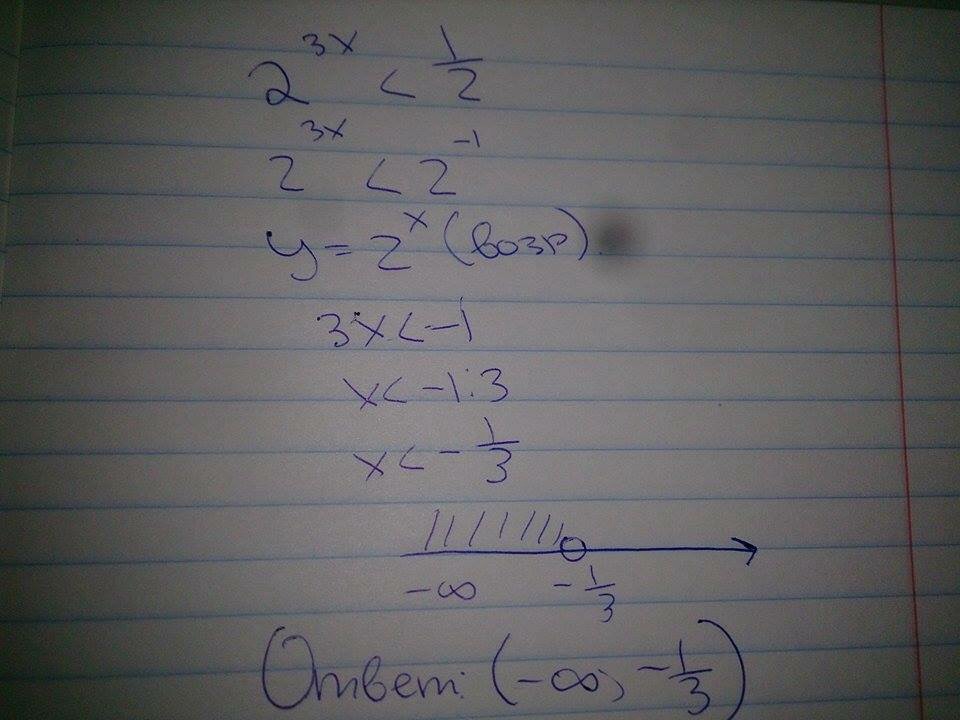 2^{3x} < \frac{1}{2}
2^{3x} < 2^{-1}
y = 2^x (возр).
3x < -1
x < -1:3
x < -\frac{1}{3}
-∞ -\frac{1}{3}
Ответ: (-∞; -\frac{1}{3})